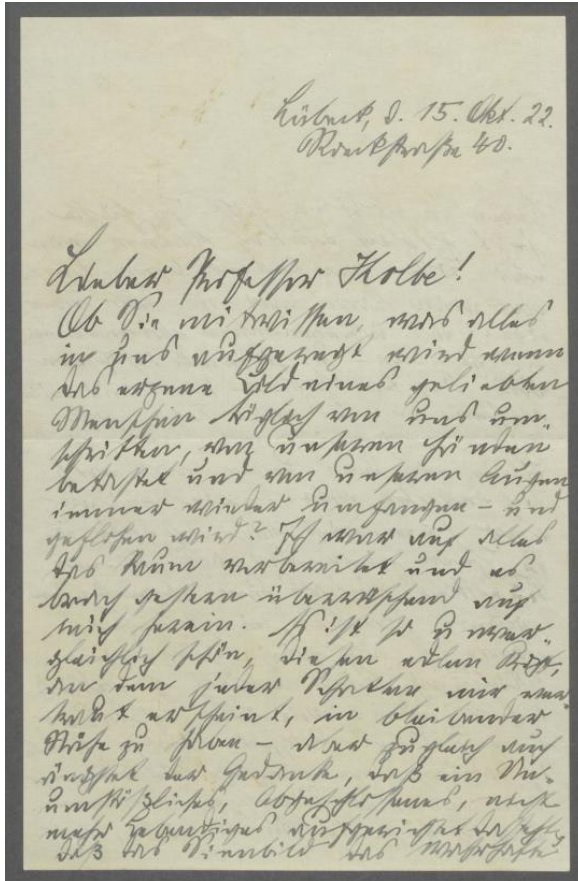 Lübeck, d. 15. Okt. 22.
Roeckstraße 40.
Lieber Professor Kolbe!
Ob Sie mitwissen, was alles
in uns aufgeregt wird wenn
das erzene Bild eines geliebten
Menschen täglich von uns um-
schritten, von unseren Händen
betastet und von unseren Augen
immer wieder umfangen – und
geflohen wird? Ich war auf alles
das kaum vorbereitet und es
brach gestern überraschend auf
mich herein. Es ist so unver-
gleichlich schön, diesen edlen Kopf,
an dem jeder Schatten mir ver-
traut erscheint, in bleibender
Nähe zu haben – aber zugleich auch
der Gedanke, daß ein Un-
umstößliches, Abgeschlossenes, nicht
mehr Lebendiges aufgerichtet dasteht,
daß das Sinnbild das wahrhafte